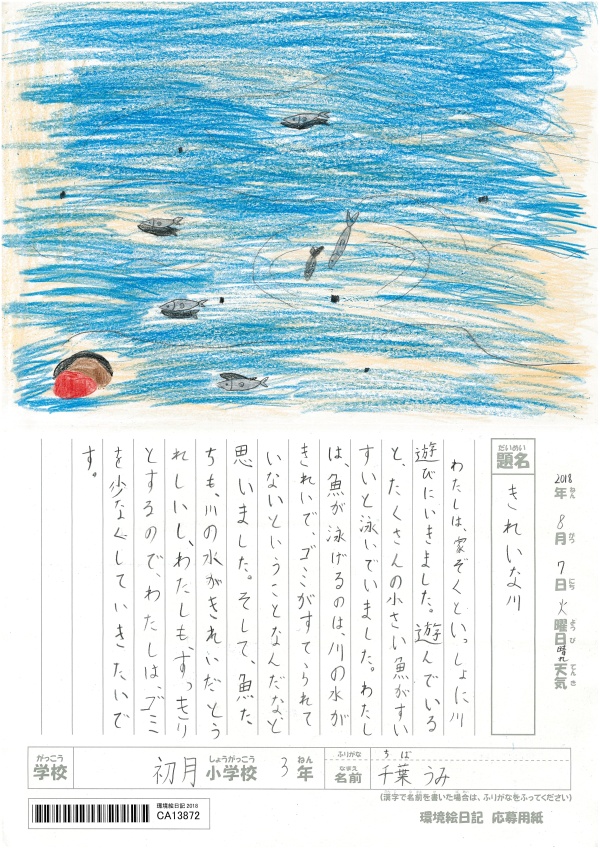 2018年ねん 8月がつ 7日にち 火曜日ようび 晴れ天気てんき
だいめい
題名
きれいな川
わたしは、家ぞくといっしょに川
遊びにいきました。遊んでいる
と、たくさんの小さい魚がすい
すいと泳いでいました。わたし
は、魚が泳げるのは、川の水が
きれいで、ゴミがすてられて
いないということなんだなと
思いました。そして、魚た
ちも、川の水がきれいだとう
れしいし、わたしも、すっきり
とするので、わたしは、ゴミ
を少なくしていきたいで
す。
がっこう
学校
初月
しょうがっこう
小学校
3
ねん
年
ふりがな
ちば
なまえ
名前
千葉 うみ
(漢字で名前を書いた場合は、ふりがなをふってください)
環境絵日記 2018
CA13872
環境絵日記 応募用紙